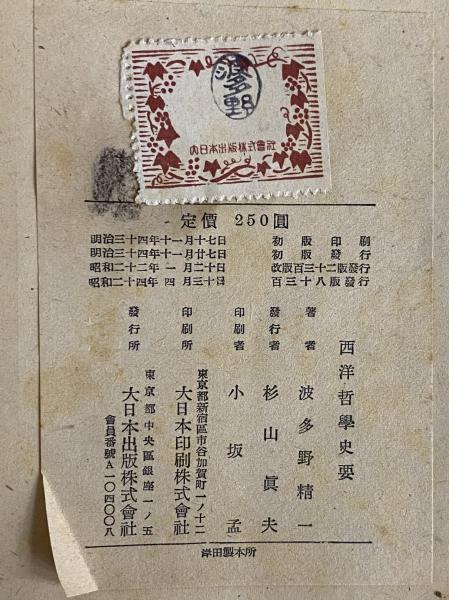 波多野
大日本出版株式會社
定價 250圓
明治三十四年十一月十七日 初版印刷
明治三十四年十一月廿七日 初版發行
昭和二十二年一月二十日 改版百三十二版發行
昭和二十四年四月三十日 百三十八版發行
西洋哲學史要
著者 波多野精一
發行者 杉山眞夫
印刷者 小坂孟
印刷所 東京都新宿區市谷加賀町一ノ十二
大日本印刷株式會社
發行所 東京都中央區銀座一ノ五
大日本出版株式會社
會員番號A一〇四〇〇八
岸田製本所